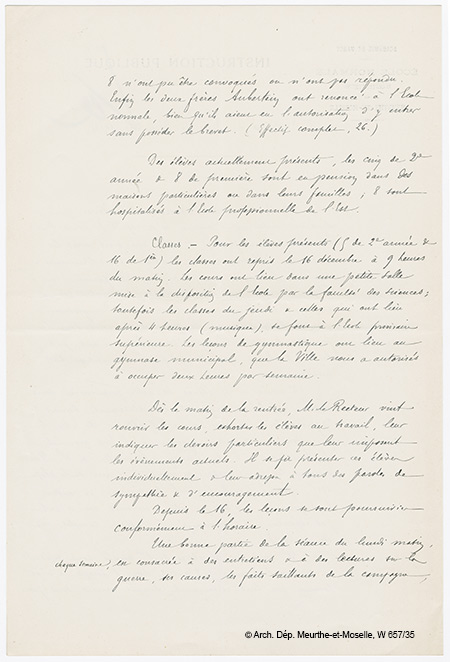 8 n'ont pu être convoqués ou n'ont pas répondu.
Enfin les deux frères Aubertin ont renoncé à l'Ecole
normale, bien qu'ils aient eu l'autorisation d'y entrer
sans posséder le brevet. (Effectif complet, 26.)
Des élèves actuellement présents, les cinq de 2e
année & 8 de première sont en pension dans des
maisons particulières ou dans leurs familles, 8 sont
hospitalisés à l'Ecole professionnelle de l'Est.
Classes. - Pour les élèves présents (5 de 2e année &
16 de 1re) les classes ont repris le 16 décembre à 9 heures
du matin. Les cours ont lieu dans une petite salle
mise à la disposition de l'Ecole par la faculté des sciences;
toutefois les classes du jeudi & celles qui ont lieu
après 4 heures (musique), se font à l'école primaire
supérieure. Les leçons de gymnastique ont lieu au
gymnase municipal, que la Ville nous a autorisés
à occuper deux heures par semaine.
Dès le matin de la rentrée, M. le Recteur vint
rouvrir les cours, exhorter les élèves au travail, leur
indiquer les devoirs particuliers que leur imposent
les évènements actuels. Il se fit présenter ces élèves
individuellement & leur adressa à tous des paroles de
sympathie & d'encouragement.
Depuis le 16, les leçons se sont poursuivies
conformément à l'horaire.
Une bonne partie de la séance du lundi matin,
chaque semaine, est consacrée à des entretiens & à des lectures sur la
guerre, ses causes, les faits saillants de la campagne,
© Arch. Dép. Meurthe-et-Moselle, W 657/35